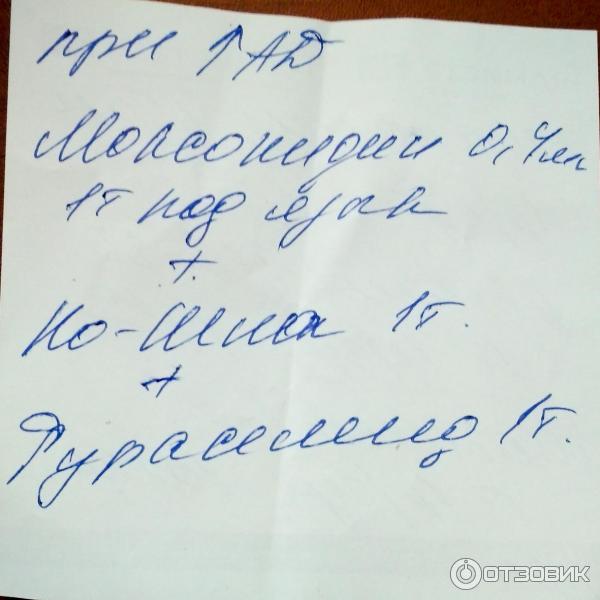 при ↑ АД
Моксонидин 0,4мг
1т под язык
+
Но-Шпа 1т.
+
Фуросемид 1т.
ОТЗОВИК